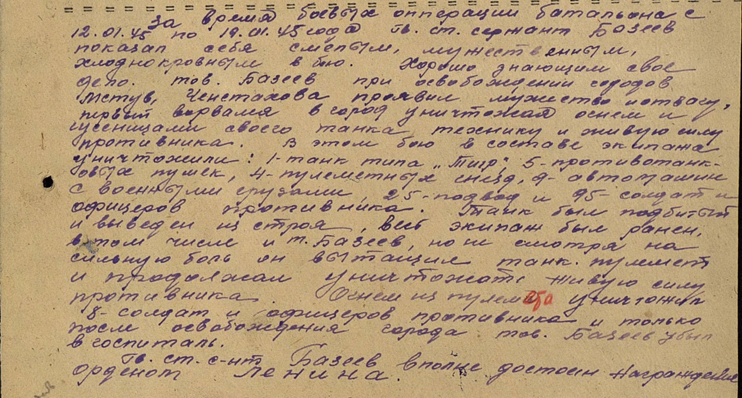 За время боевых опперации баталиона с
12.01.45 по 19.01.45 года Гв. ст. сержант Базеев
показал себя смелым, мужественным,
хлоднокровным в бою. Хорошо знающим свое
дело. тов. Базеев при освобождении городов
Мстув, Ченстахова проявил мужество и отвагу,
первый ворвался в город уничтожая огнем и
гусеницами своего танка технику и живую силу
противника. В этом бою в составе экипажа
уничтожили: 1-танк типа "Тигр", 5-противотанк-
овых пушек, 4-пулеметных гнезд, 9-автомашин
с военными грузами 25-подвод и 95-солдат и
офицеров противника. Танк был подбитый
и выведен из строя, весь экипаж был ранен,
в том числе и т. Базеев, но ни смотря на
сильную боль он вытащил танк. пулемет
и продолжал уничтожать живую силу
противника. Огнем из пулемета уничтожил
8-солдат и офицеров противника и только
после освобождения города тов. Базеев убыл
в госпиталь.
Гв. ст. с-нт Базеев вполне достоин награждение
орденом Ленина.